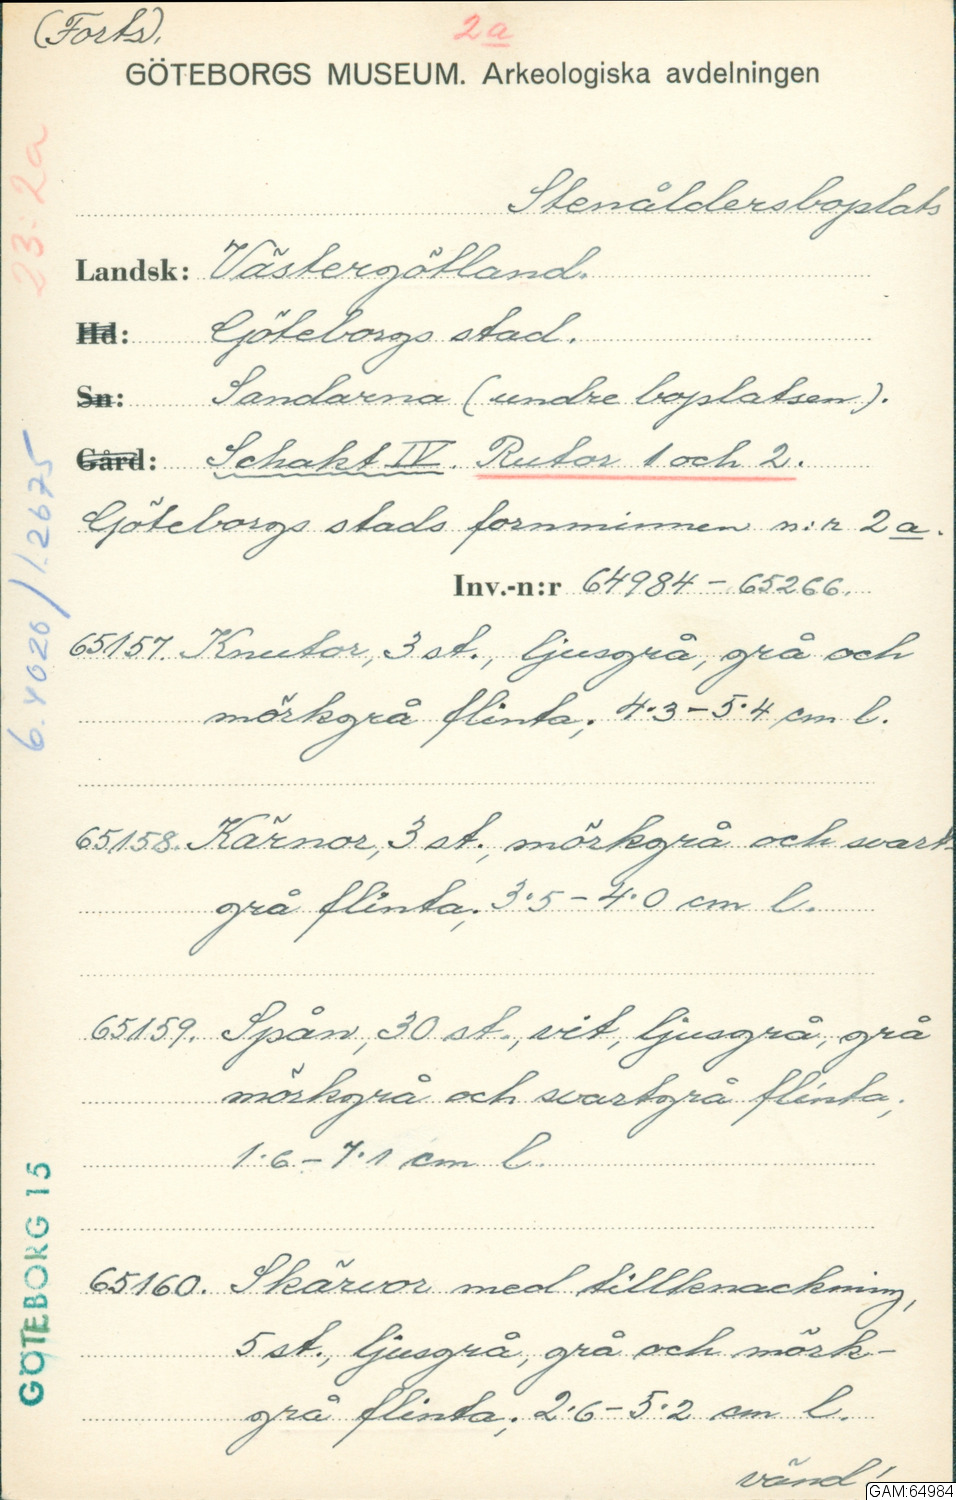 (Forts).
2a
GÖTEBORGS MUSEUM. Arkeologiska avdelningen
23:2a
Stenåldersboplats
Landsk: Västergötland.
Hd: Göteborgs stad.
Sn: Sandarna (undre boplatsen).
Gård: Schakt IV. Rutor 1 och 2.
Göteborgs stads fornminnen n:r 2a.
Inv.-n:r 64984 – 65266.
65157. Knutor, 3 st., ljusgrå, grå och
mörkgrå flinta; 4.3 – 5.4 cm l.
65158. Kärnor, 3 st., mörkgrå och svart-
grå flinta; 3.5 – 4.0 cm l.
65159. Spån, 30 st., vit, ljusgrå, grå
mörkgrå och svartgrå flinta;
1.6 – 7.1 cm l.
65160. Skärvor med tillknackning,
5 st., ljusgrå, grå och mörk-
grå flinta; 2.6 – 5.2 cm l.
vänd!
GÖTEBORG 15
GAM:64984